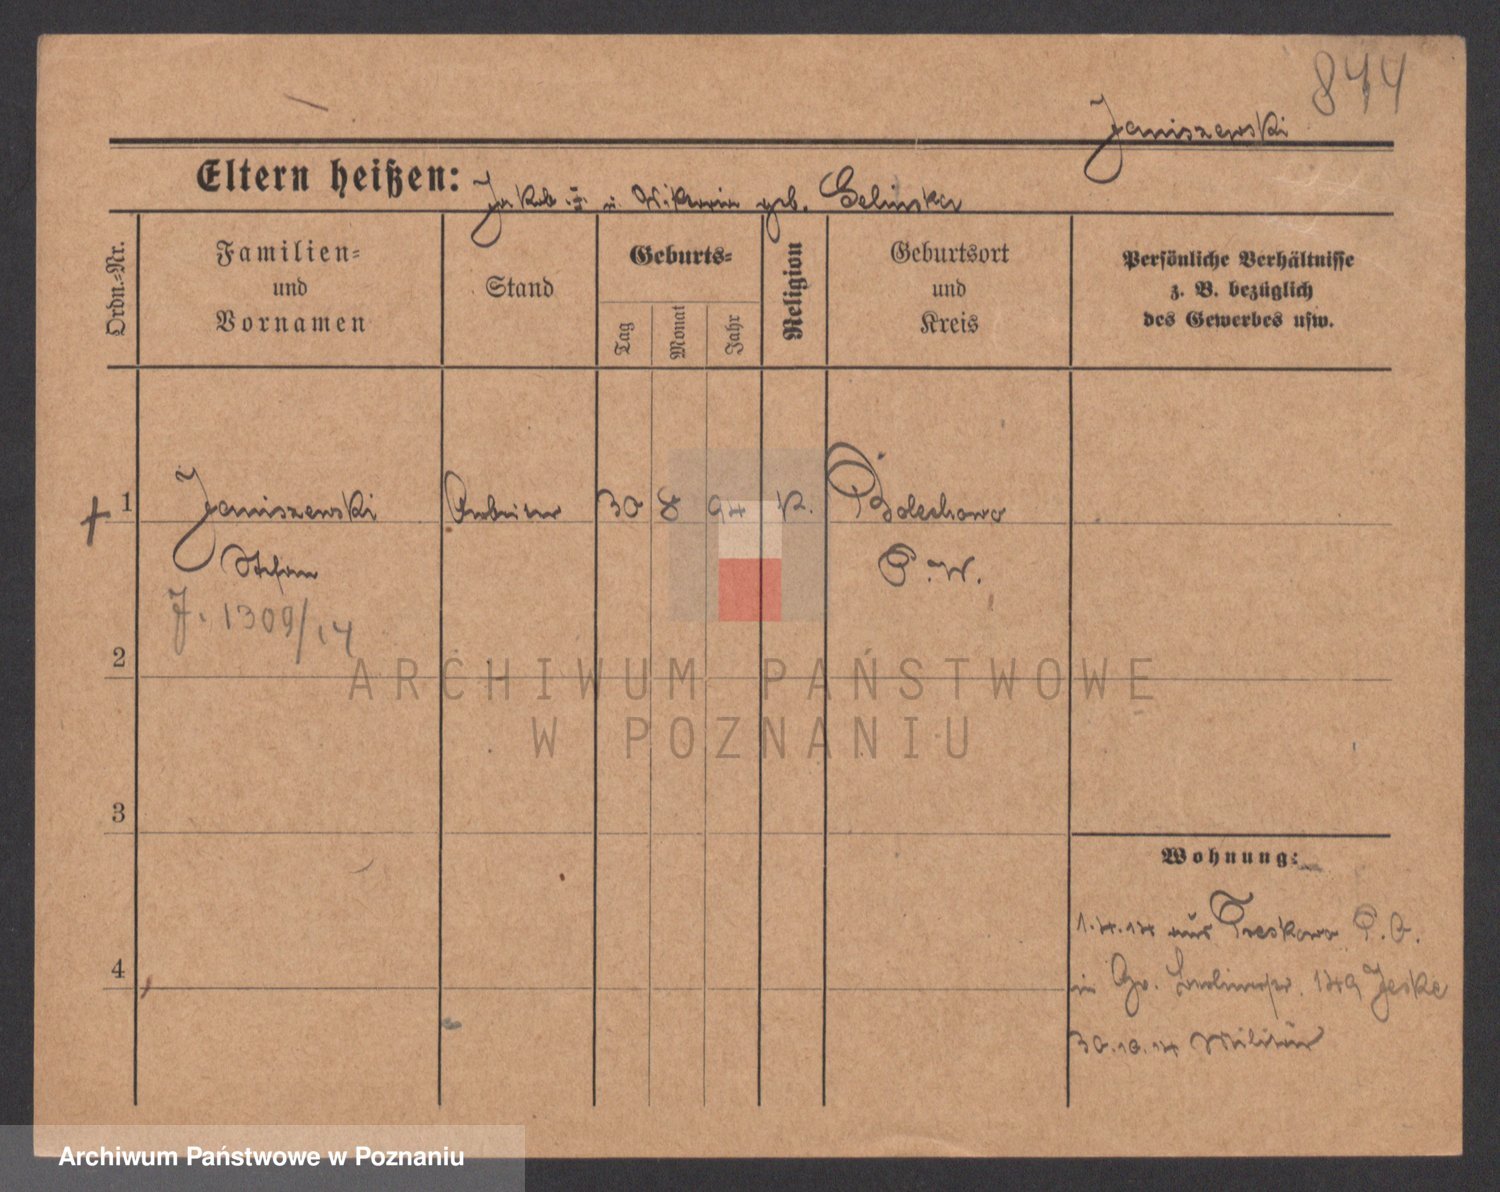 844
Janiszewski
Eltern heißen: Jakob u. Viktoria geb. Selinska
Ordn.=Nr.
Familien=
und
Vornamen
Stand
Geburts=
Tag
Monat
Jahr
Religion
Geburtsort
und
Kreis
Persönliche Verhältnisse
z. B. bezüglich
des Gewerbes usw.
1 Janiszewski Arbeiter 30 8 94 K. Bolechowo
Stefan P. W.
J. 1309/14
2
3
4
Wohnung:
1.4.14 aus Treskowo P. O.
in Gr. 149 Jeske
30.10.14 Militär
ARCHIWUM PAŃSTWOWE
W POZNANIU
Archiwum Państwowe w Poznaniu